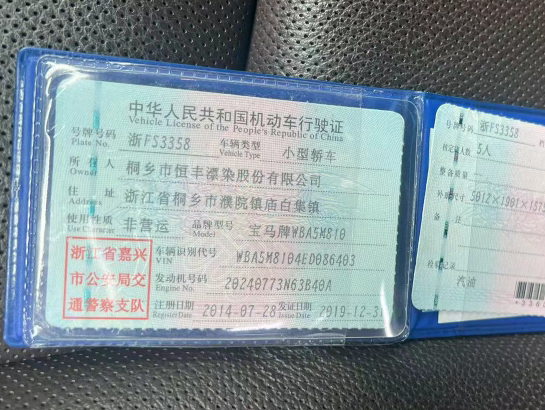 中华人民共和国机动车行驶证
Vehicle License of the People's Republic of China
号牌号码 浙FS3358 车辆类型 小型轿车
Plate No. Vehicle Type
所有人 桐乡市恒丰漂染股份有限公司
Owner
住址 浙江省桐乡市濮院镇庙白集镇
Address
使用性质 非营运 品牌型号 宝马牌WBA5M810
Use Character Model
浙江省嘉兴
市公安局交
通警察支队
车辆识别代号 WBA5M8104ED086403
VIN
发动机号码 20240773N63B40A
Engine No.
注册日期 2014-07-28 发证日期 2019-12-31
Register Date Issue Date
号牌号码 浙FS3358
核定载人数 5人
整备质量
外廓尺寸 5012×1901×1515
备注
检验记录
汽油